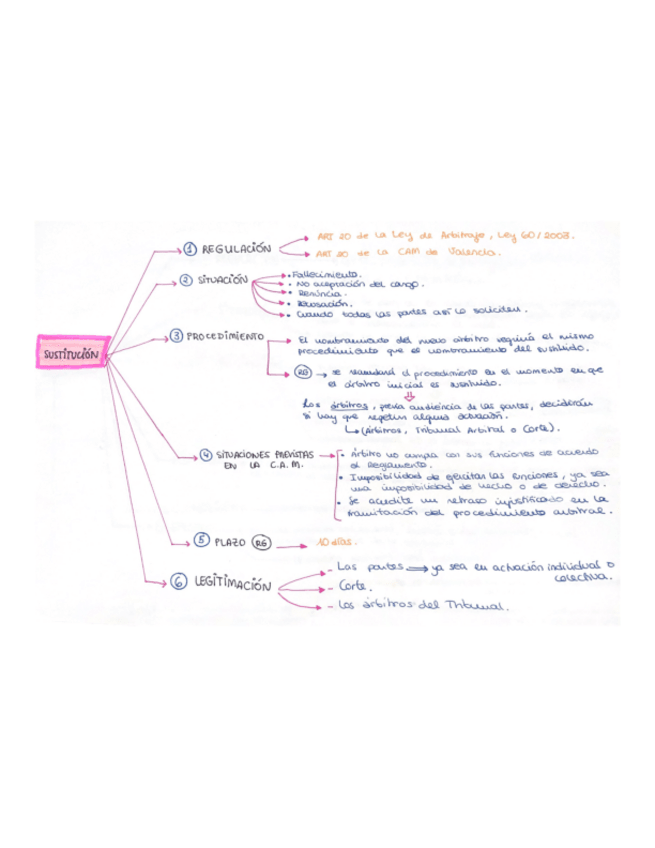 SUSTITUCIÓN
1 REGULACIÓN
ART 20 de la Ley de Arbitraje, Ley 60/2003.
ART 20 de la CAM de Valencia.
2 SITUACIÓN
• Fallecimiento.
• No aceptación del cargo.
• Renuncia.
• Recusación.
• Cuando todas las partes así lo soliciten.
3 PROCEDIMIENTO
El nombramiento del nuevo árbitro seguirá el mismo
procedimiento que el nombramiento del sustituido.
RG → se reanudará el procedimiento en el momento en que
el árbitro inicial es sustituido.
Los árbitros, previa audiencia de las partes, decidirán
si hay que repetir alguna actuación.
↳ (Árbitros, Tribunal Arbitral o Corte).
4 SITUACIONES PREVISTAS
EN LA C.A.M.
• Árbitro no cumpla con sus funciones de acuerdo
al Reglamento.
• Imposibilidad de ejercitar las funciones, ya sea
una imposibilidad de hecho o de derecho.
• Se acredite un retraso injustificado en la
tramitación del procedimiento arbitral.
5 PLAZO RG
10 días.
6 LEGITIMACIÓN
- Las partes → ya sea en actuación individual o
colectiva.
- Corte.
- Los árbitros del Tribunal.